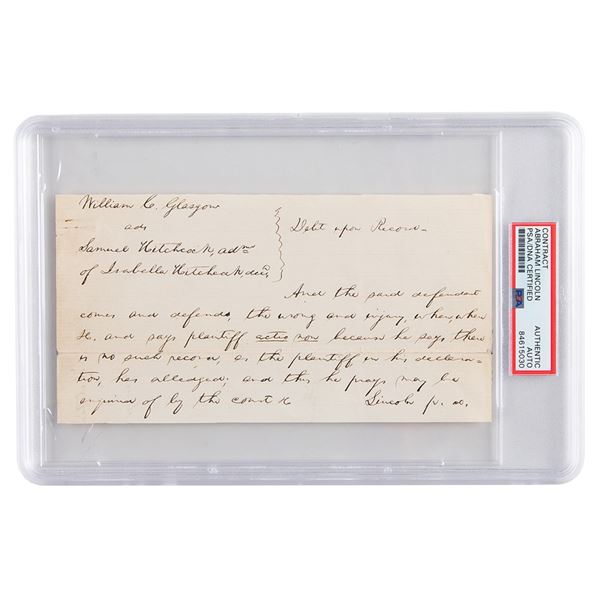 William C. Glasgow
ads
Samuel Hitchcock, admr
of Isabella Hitchcock, decd
Debt upon Record—
And the said defendant
comes and defends, the wrong and injury, when, where
&c. and says plaintiff actio non because he says there
is no such record, as the plaintiff in his declara-
tion, has alledged; and this he prays may be
enquired of by the court &c Lincoln p. d.
CONTRACT
ABRAHAM LINCOLN
PSA/DNA CERTIFIED
PSA
AUTHENTIC
AUTO
84615030